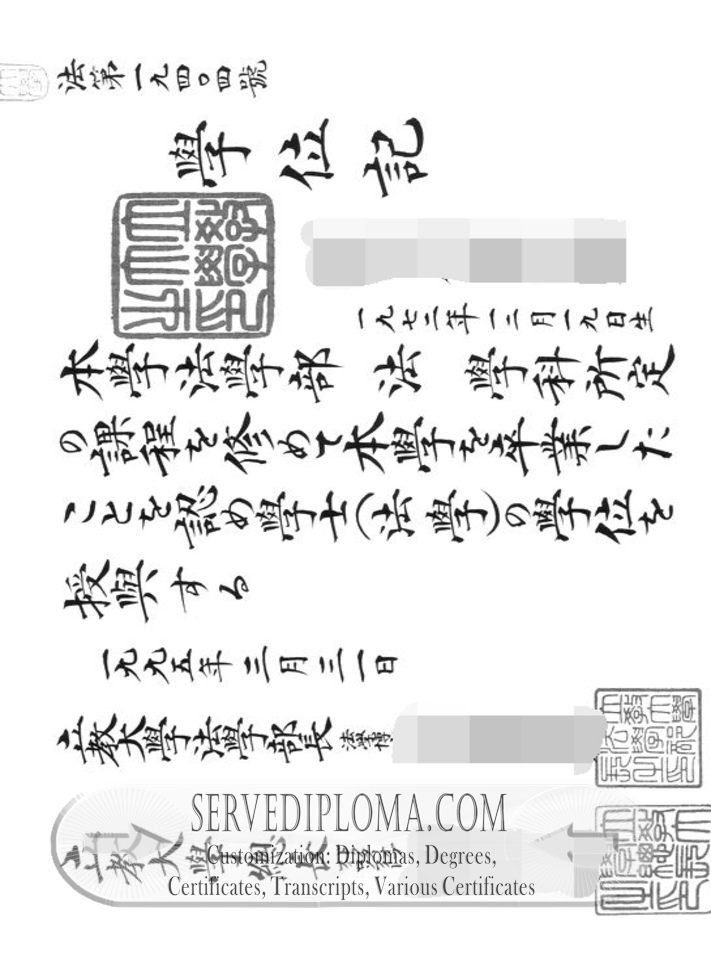 法第一九四〇四號
學位記
一九七二年一二月一九日生
本學法學部 法 學科所定
の課程を修めて本學を卒業した
ことを認め學士(法學)の學位を
授與する
一九九五年三月三一日
立教大學法學部長 法學博
立教大學總長
SERVEDIPLOMA.COM
Customization: Diplomas, Degrees,
Certificates, Transcripts, Various Certificates